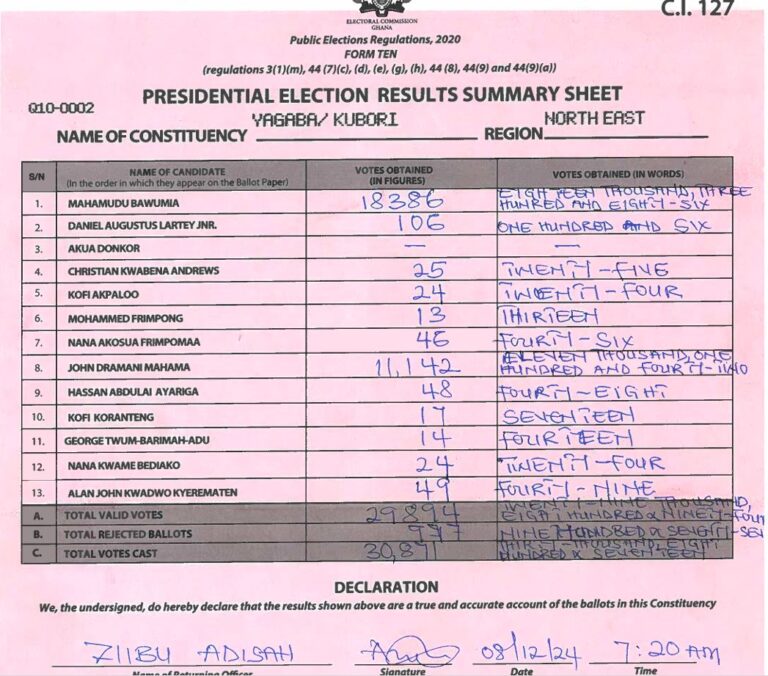 C.I. 127
ELECTORAL COMMISSION
GHANA
Public Elections Regulations, 2020
FORM TEN
(regulations 3(1)(m), 44 (7)(c), (d), (e), (g), (h), 44 (8), 44(9) and 44(9)(a))
PRESIDENTIAL ELECTION RESULTS SUMMARY SHEET
Q10-0002
NAME OF CONSTITUENCY YAGABA/ KUBORI REGION NORTH EAST
S/N NAME OF CANDIDATE (In the order in which they appear on the Ballot Paper) VOTES OBTAINED (IN FIGURES) VOTES OBTAINED (IN WORDS)
1. MAHAMUDU BAWUMIA 18386 EIGHTEEN THOUSAND, THREE HUNRED AND EIGHTY-SIX
2. DANIEL AUGUSTUS LARTEY JNR. 106 ONE HUNDRED AND SIX
3. AKUA DONKOR — —
4. CHRISTIAN KWABENA ANDREWS 25 TWENTY-FIVE
5. KOFI AKPALOO 24 TWENTY-FOUR
6. MOHAMMED FRIMPONG 13 THIRTEEN
7. NANA AKOSUA FRIMPOMAA 46 FOURTY-SIX
8. JOHN DRAMANI MAHAMA 11,142 ELEVEN THOUSAND, ONE HUNDRED AND FOURTY-TWO
9. HASSAN ABDULAI AYARIGA 48 FOURTY-EIGHT
10. KOFI KORANTENG 17 SEVENTEEN
11. GEORGE TWUM-BARIMAH-ADU 14 FOURTEEN
12. NANA KWAME BEDIAKO 24 TWENTY-FOUR
13. ALAN JOHN KWADWO KYEREMATEN 49 FOURTY-NINE
A. TOTAL VALID VOTES 29,894 TWENTY-NINE THOUSAND, EIGHT HUNDRED & NINETY-FOUR
B. TOTAL REJECTED BALLOTS 977 NINE HUNDRED & SEVENTY-SEV
C. TOTAL VOTES CAST 30,871 THIRTY-THOUSAND, EIGHT HUNDRED & SEVENTEEN
DECLARATION
We, the undersigned, do hereby declare that the results shown above are a true and accurate account of the ballots in this Constituency
ZIIBU ADISAH 08/12/24 7:20 AM
Name of Returning Officer Signature Date Time